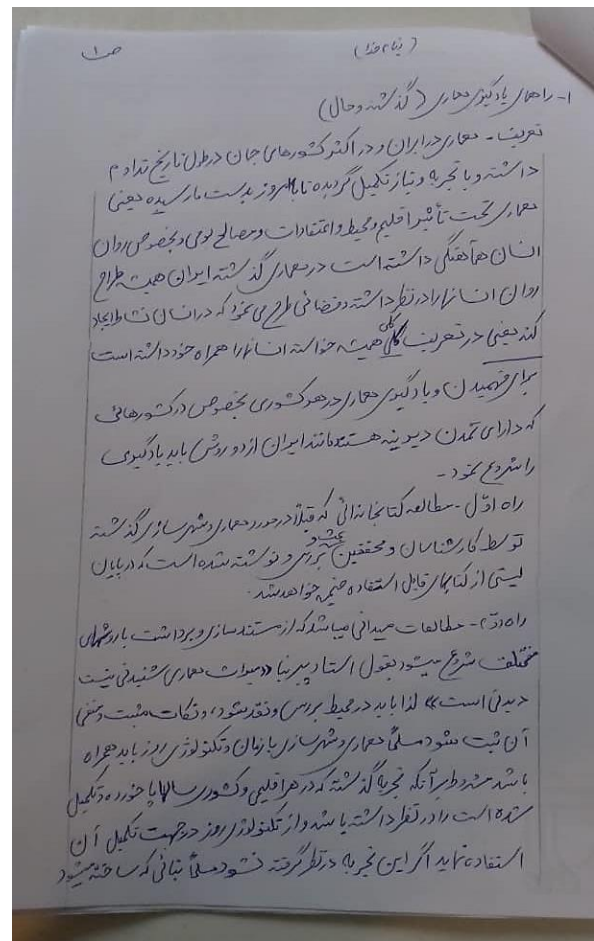 (بنام خدا) ص ۱
۱- راههای یادگیری معماری (گذشته و حال)
تعریف - معماری در ایران و در اکثر کشورهای جهان در طول تاریخ تداوم
داشته و با تجربه و نیاز تکمیل گردیده تا بامروز بدست ما رسیده یعنی
معماری تحت تأثیر اقلیم و محیط و اعتقادات و مصالح بومی و بخصوص روان
انسان هم‌آهنگی داشته است در معماری گذشته ایران همیشه طراح
روان انسانها را در نظر داشته و فضائی طرح می نمود که در انسان نشاط ایجاد
کند یعنی در تعریف کلی همیشه خواسته انسانها را همراه خود داشته است
برای فهمیدن و یادگیری معماری در هر کشوری بخصوص در کشورهائی
که دارای تمدن دیرینه هستند مانند ایران از دو روش باید یادگیری
را شروع نمود -
راه اوّل - مطالعه کتابخانه‌ائی که قبلاً در مورد معماری و شهرسازی گذشته
توسط کارشناسان و محققین بررسی و نوشته شده است که در پایان
لیستی از کتابهای قابل استفاده ضمیمه خواهد شد.
راه دوّم - مطالعات میدانی میباشد که از مستندسازی و برداشت با روشهای
مختلف شروع میشود بقول استاد پیرنیا «میراث معماری شنیدنی نیست
دیدنی است» لذا باید در محیط بررسی و نقد شود، و نکات مثبت و منفی
آن ثبت شود مسلماً معماری و شهرسازی با زمان و تکنولوژی روز باید همراه
باشد مشروط بر آنکه تجربه گذشته که در هر اقلیمی و کشوری سالها پا خورده و تکمیل
شده است را در نظر داشته باشد و از تکنولوژی روز در جهت تکمیل آن
استفاده نماید اگر این تجربه در نظر گرفته نشود مسلماً بنائی که ساخته میشود